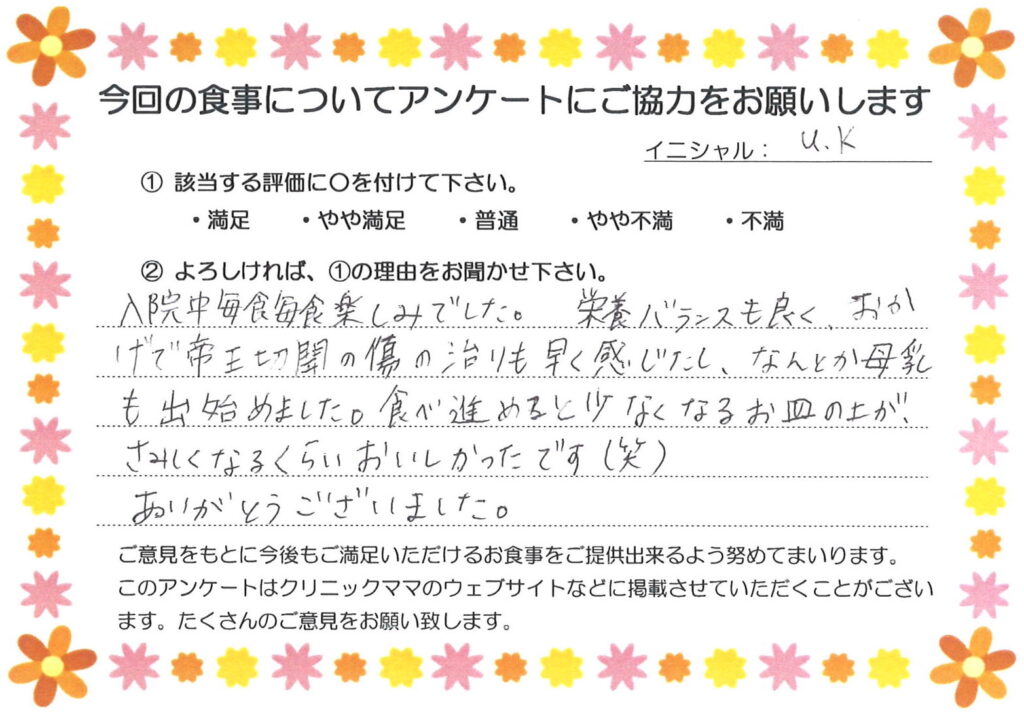 今回の食事についてアンケートにご協力をお願いします
イニシャル： U.K
① 該当する評価に〇を付けて下さい。
・満足 ・やや満足 ・普通 ・やや不満 ・不満
② よろしければ、①の理由をお聞かせ下さい。
入院中毎食毎食楽しみでした。 栄養バランスも良く、おか
げで帝王切開の傷の治りも早く感じたし、なんとか母乳
も出始めました。食べ進めると少なくなるお皿の上が、
さみしくなるくらいおいしかったです(笑)
ありがとうございました。
ご意見をもとに今後もご満足いただけるお食事をご提供出来るよう努めてまいります。
このアンケートはクリニックママのウェブサイトなどに掲載させていただくことがござい
ます。たくさんのご意見をお願い致します。